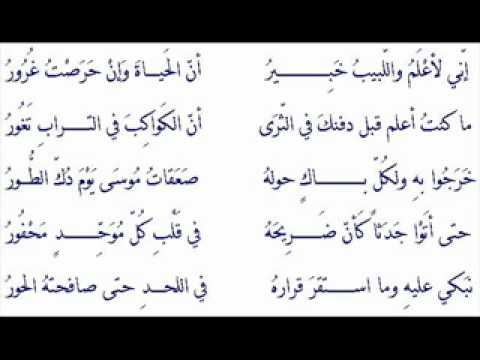 إنّي لأعْلَمُ واللّبيبُ خَبِــــــيرُ أنّ الحَياةَ وَإنْ حَرَصْتُ غُرُورُ
ما كنتُ أعلم قبل دفنكَ في الثّرَى أنّ الكَوَاكِبَ في التــرابِ تَغُورُ
خَرَجُوا بهِ ولكُلّ بــــاكٍ حوله صَعَقاتُ مُوسَى يَوْمَ دُكّ الطُّــورُ
حتى أتَوْا جَدَثاً كَأنّ ضَــرِيحَهُ في قَلْبِ كُلّ مُوَحِّــدٍ مَحْفُورُ
نَبكي عليهِ وما استــقرَ قرارهُ في اللحدِ حتّى صافحتهُ الحورُ